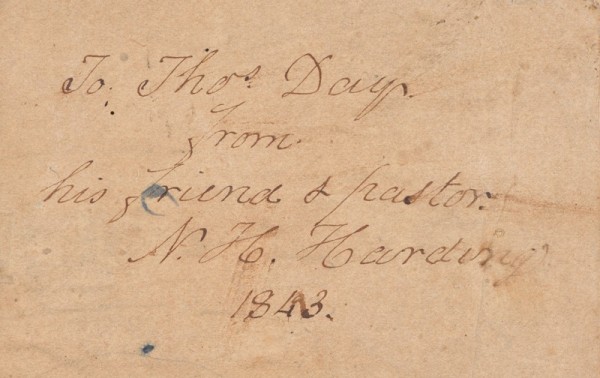 To, Thos. Day.
from.
his friend & pastor.
N. H. Harding
1843.